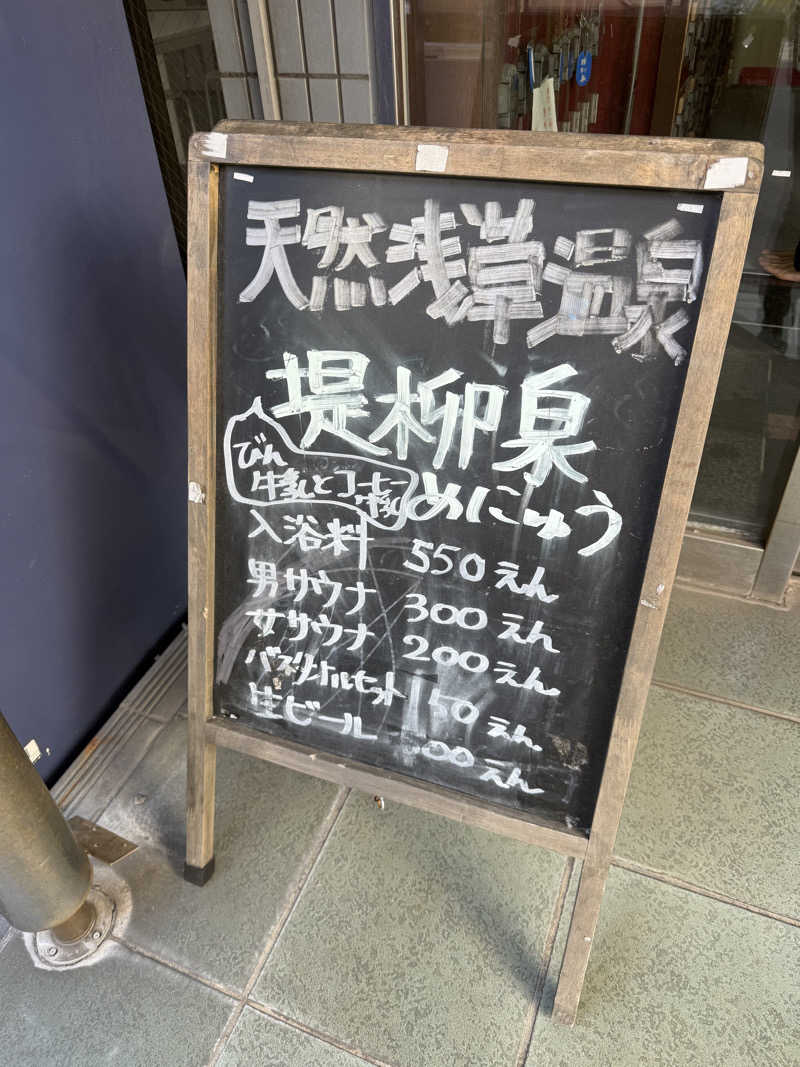 天然浅草温泉
堤柳泉
びん
牛乳とコーヒー
牛乳
めにゅう
入浴料 550えん
男サウナ 300えん
女サウナ 200えん
バスタオルセット 150えん
生ビール 00えん